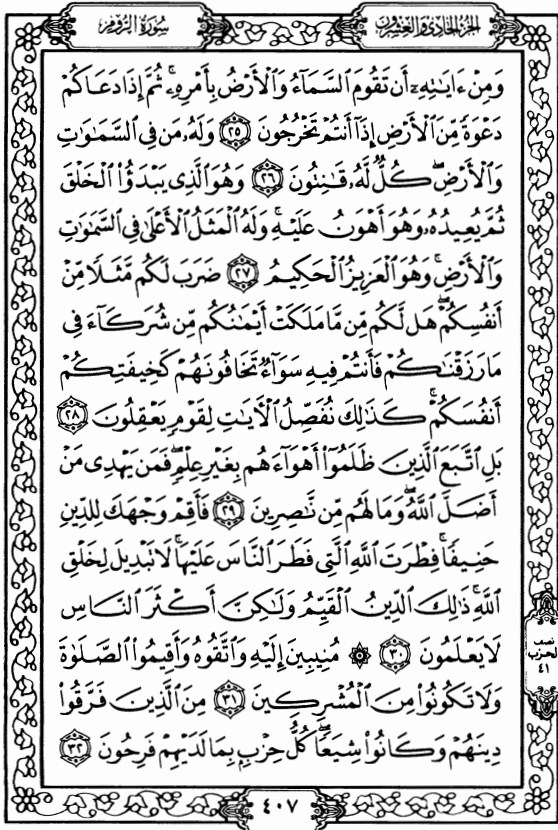 الجزء الحادي والعشرون
سورة الروم
وَمِنْ ءَايَٰتِهِۦٓ أَن تَقُومَ ٱلسَّمَآءُ وَٱلْأَرْضُ بِأَمْرِهِۦۚ ثُمَّ إِذَا دَعَاكُمْ
دَعْوَةً مِّنَ ٱلْأَرْضِ إِذَآ أَنتُمْ تَخْرُجُونَ ٢٥ وَلَهُۥ مَن فِى ٱلسَّمَٰوَٰتِ
وَٱلْأَرْضِۖ كُلٌّ لَّهُۥ قَٰنِتُونَ ٢٦ وَهُوَ ٱلَّذِى يَبْدَؤُا۟ ٱلْخَلْقَ
ثُمَّ يُعِيدُهُۥ وَهُوَ أَهْوَنُ عَلَيْهِۚ وَلَهُ ٱلْمَثَلُ ٱلْأَعْلَىٰ فِى ٱلسَّمَٰوَٰتِ
وَٱلْأَرْضِۚ وَهُوَ ٱلْعَزِيزُ ٱلْحَكِيمُ ٢٧ ضَرَبَ لَكُم مَّثَلًا مِّنْ
أَنفُسِكُمْۖ هَل لَّكُم مِّن مَّا مَلَكَتْ أَيْمَٰنُكُم مِّن شُرَكَآءَ فِى
مَا رَزَقْنَٰكُمْ فَأَنتُمْ فِيهِ سَوَآءٌ تَخَافُونَهُمْ كَخِيفَتِكُمْ
أَنفُسَكُمْۚ كَذَٰلِكَ نُفَصِّلُ ٱلْءَايَٰتِ لِقَوْمٍ يَعْقِلُونَ ٢٨
بَلِ ٱتَّبَعَ ٱلَّذِينَ ظَلَمُوٓا۟ أَهْوَآءَهُم بِغَيْرِ عِلْمٍۖ فَمَن يَهْدِى مَنْ
أَضَلَّ ٱللَّهُۖ وَمَا لَهُم مِّن نَّٰصِرِينَ ٢٩ فَأَقِمْ وَجْهَكَ لِلدِّينِ
حَنِيفًاۚ فِطْرَتَ ٱللَّهِ ٱلَّتِى فَطَرَ ٱلنَّاسَ عَلَيْهَاۚ لَا تَبْدِيلَ لِخَلْقِ
ٱللَّهِۚ ذَٰلِكَ ٱلدِّينُ ٱلْقَيِّمُ وَلَٰكِنَّ أَكْثَرَ ٱلنَّاسِ
لَا يَعْلَمُونَ ٣٠ ۞ مُنِيبِينَ إِلَيْهِ وَٱتَّقُوهُ وَأَقِيمُوا۟ ٱلصَّلَوٰةَ
وَلَا تَكُونُوا۟ مِنَ ٱلْمُشْرِكِينَ ٣١ مِنَ ٱلَّذِينَ فَرَّقُوا۟
دِينَهُمْ وَكَانُوا۟ شِيَعًاۖ كُلُّ حِزْبٍۭ بِمَا لَدَيْهِمْ فَرِحُونَ ٣٢
نصف
الحزب
٤١
٤٠٧